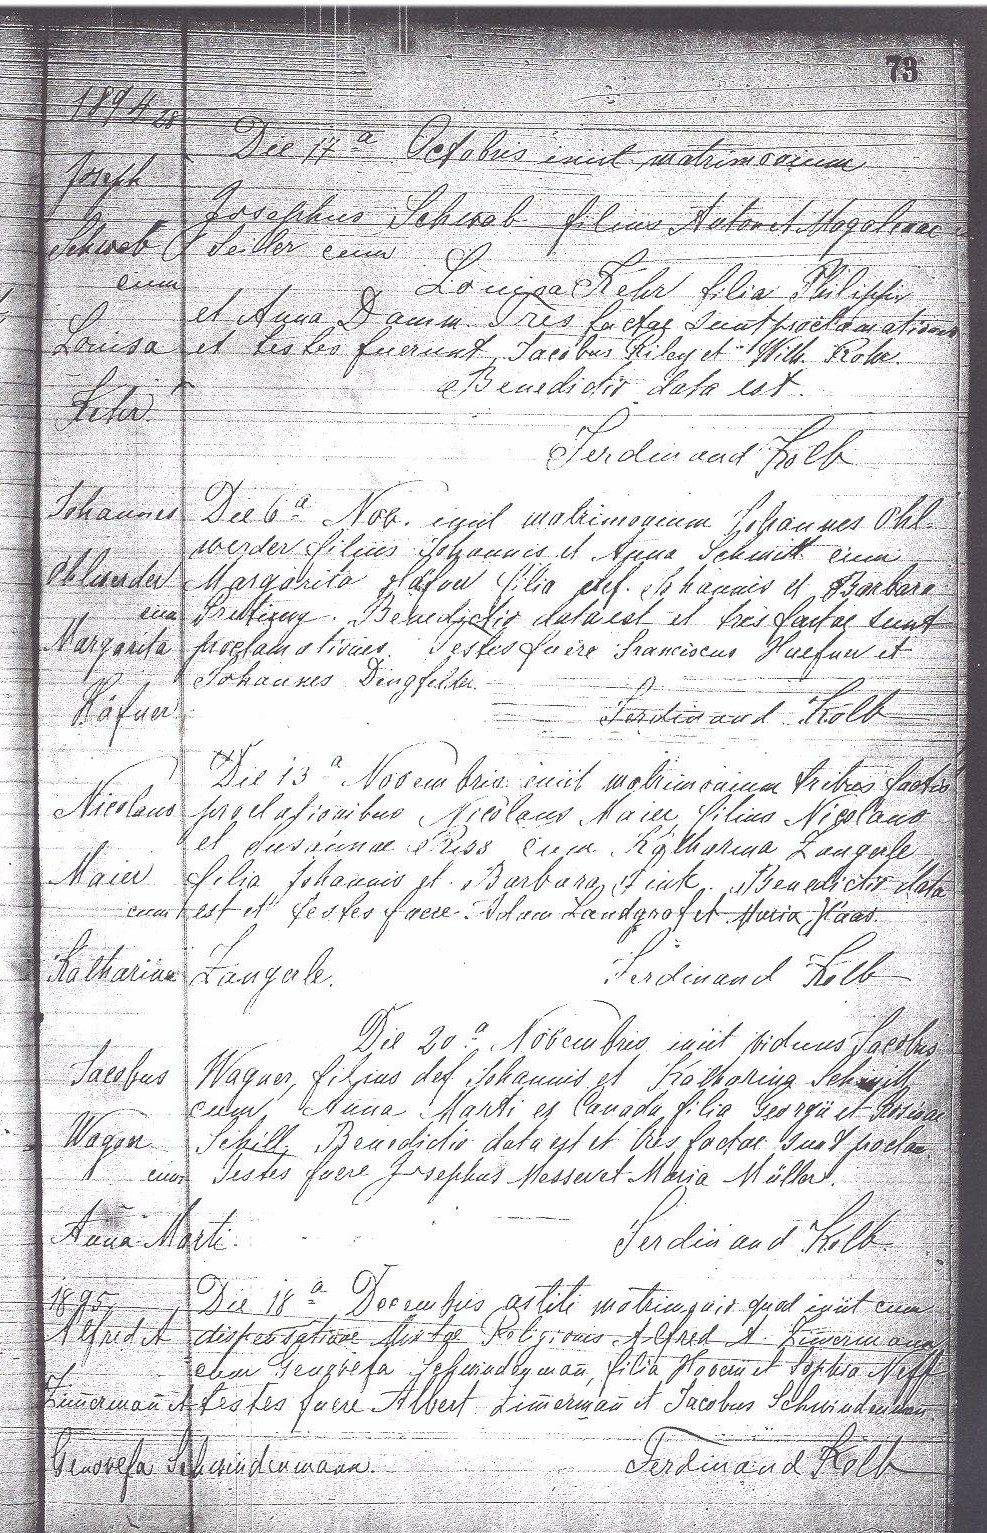 73
1894
28
Die 17a Octobris iniit matrimonium
Joseph
Josephus Schwab filius Anton et Magalenae
Schwab Seiller cum
cum Louisa Kehr filia Philippi
et Anna Damm. Tres factae sunt proclamationes
Louisa et testes fuerunt Jacobus Riley et Wilh. Kohr.
Benedictio data est.
Kehr.
Ferdinand Kolb
Johannes Die 6a Nov. iniit matrimonium Johannes Ohl-
werder filius Johannis et Anna Schmitt cum
Ohlwerder Margarita Häfner filia def. Johannis et Barbara
cum Benedictio data est et tres factae sunt
Margarita proclamationes. Testes fuere Franciscus Huefner et
Johannes Dingfelder.
Häfner Ferdinand Kolb
Die 13a Novembris iniit matrimonium tribus factis
Nicolaus Nicolaus Maier filius Nicolaus
et Susannae Riss cum Katharina Zangerle
Maier filia Johannis et Barbara Fink. Benedictio data
cum est et testes fuere Adam Landgraf et Maria Haas.
Katharina Zangerle. Ferdinand Kolb
Die 20a Novembris iniit viduus Jacobus
Jacobus Wagner, filius def Johannis et Katharina Schmitt
cum Anna Marti ex Canada filia Georgii et Rosinae
Wagner Schill, Benedictio data est et tres factae sunt proclam
cum Testes fuere Josephus Messer et Maria Müller.
Anna Marti. Ferdinand Kolb.
1895 Die 18a Decembris astiti matrimonio quod iniit cum
Alfred A dispensatione Mixtae Religionis Alfred A. Zim̄ermann
cum Genovefa Schwindenmañ, filia et Sophia Neff
Zim̄ermañ et testes fuere Albert Zim̄ermañ et Jacobus Schwindenmañ
Genovefa Schwindenmann. Ferdinand Kolb